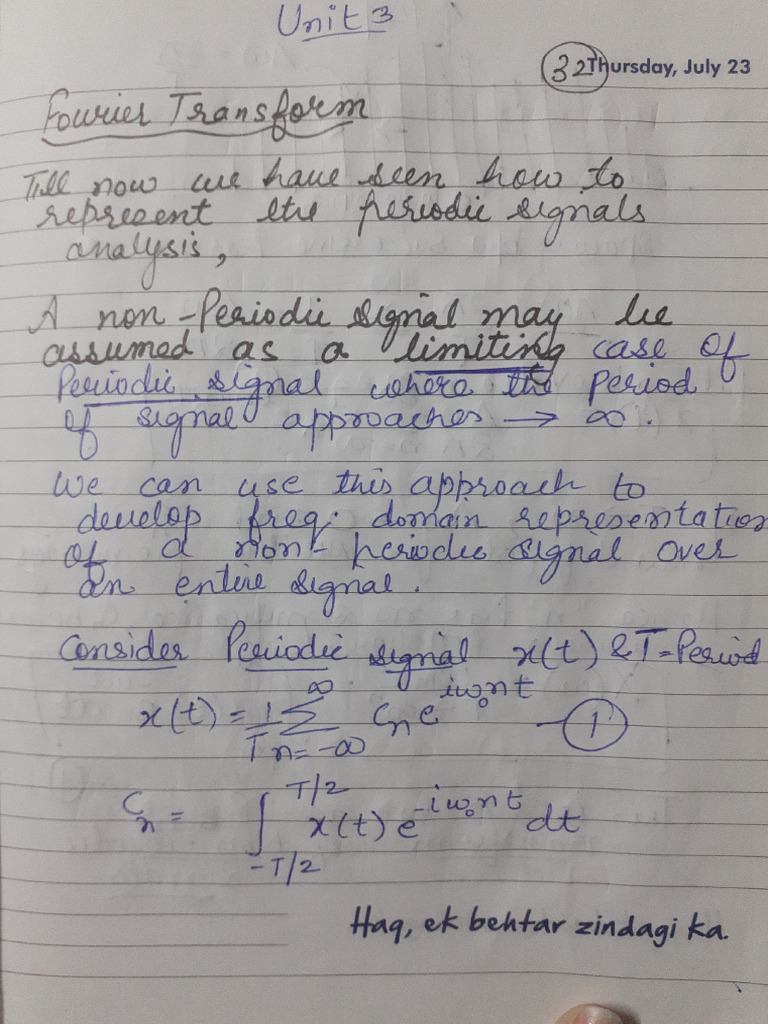 Unit 3
32 Thursday, July 23
Fourier Transform
Till now we have seen how to
represent the periodic signals
analysis,
A non-Periodic signal may be
assumed as a limiting case of
Periodic signal where the Period
of signal approaches → ∞.
We can use this approach to
develop freq. domain representation
of a non-periodic signal over
an entire signal.
Consider Periodic signal x(t) & T=Period
x(t) = 1/T ∑ₙ₌₋∞^∞ Cₙ e^(iω₀nt) — ①
Cₙ = ∫_(-T/2)^(T/2) x(t) e^(-iω₀nt) dt
Haq, ek behtar zindagi ka.